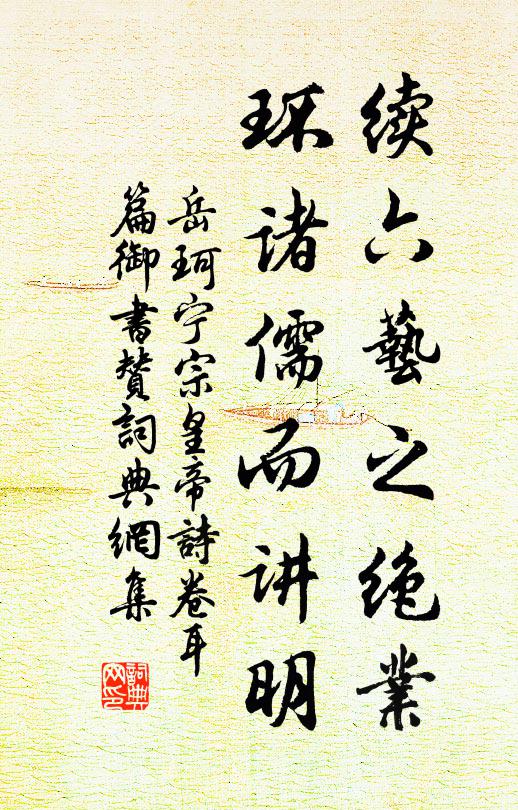 续六藝之绝業
环诸儒而讲明
岳珂宁宗皇帝詩卷耳
篇御書贊詞典網集
詞典网印